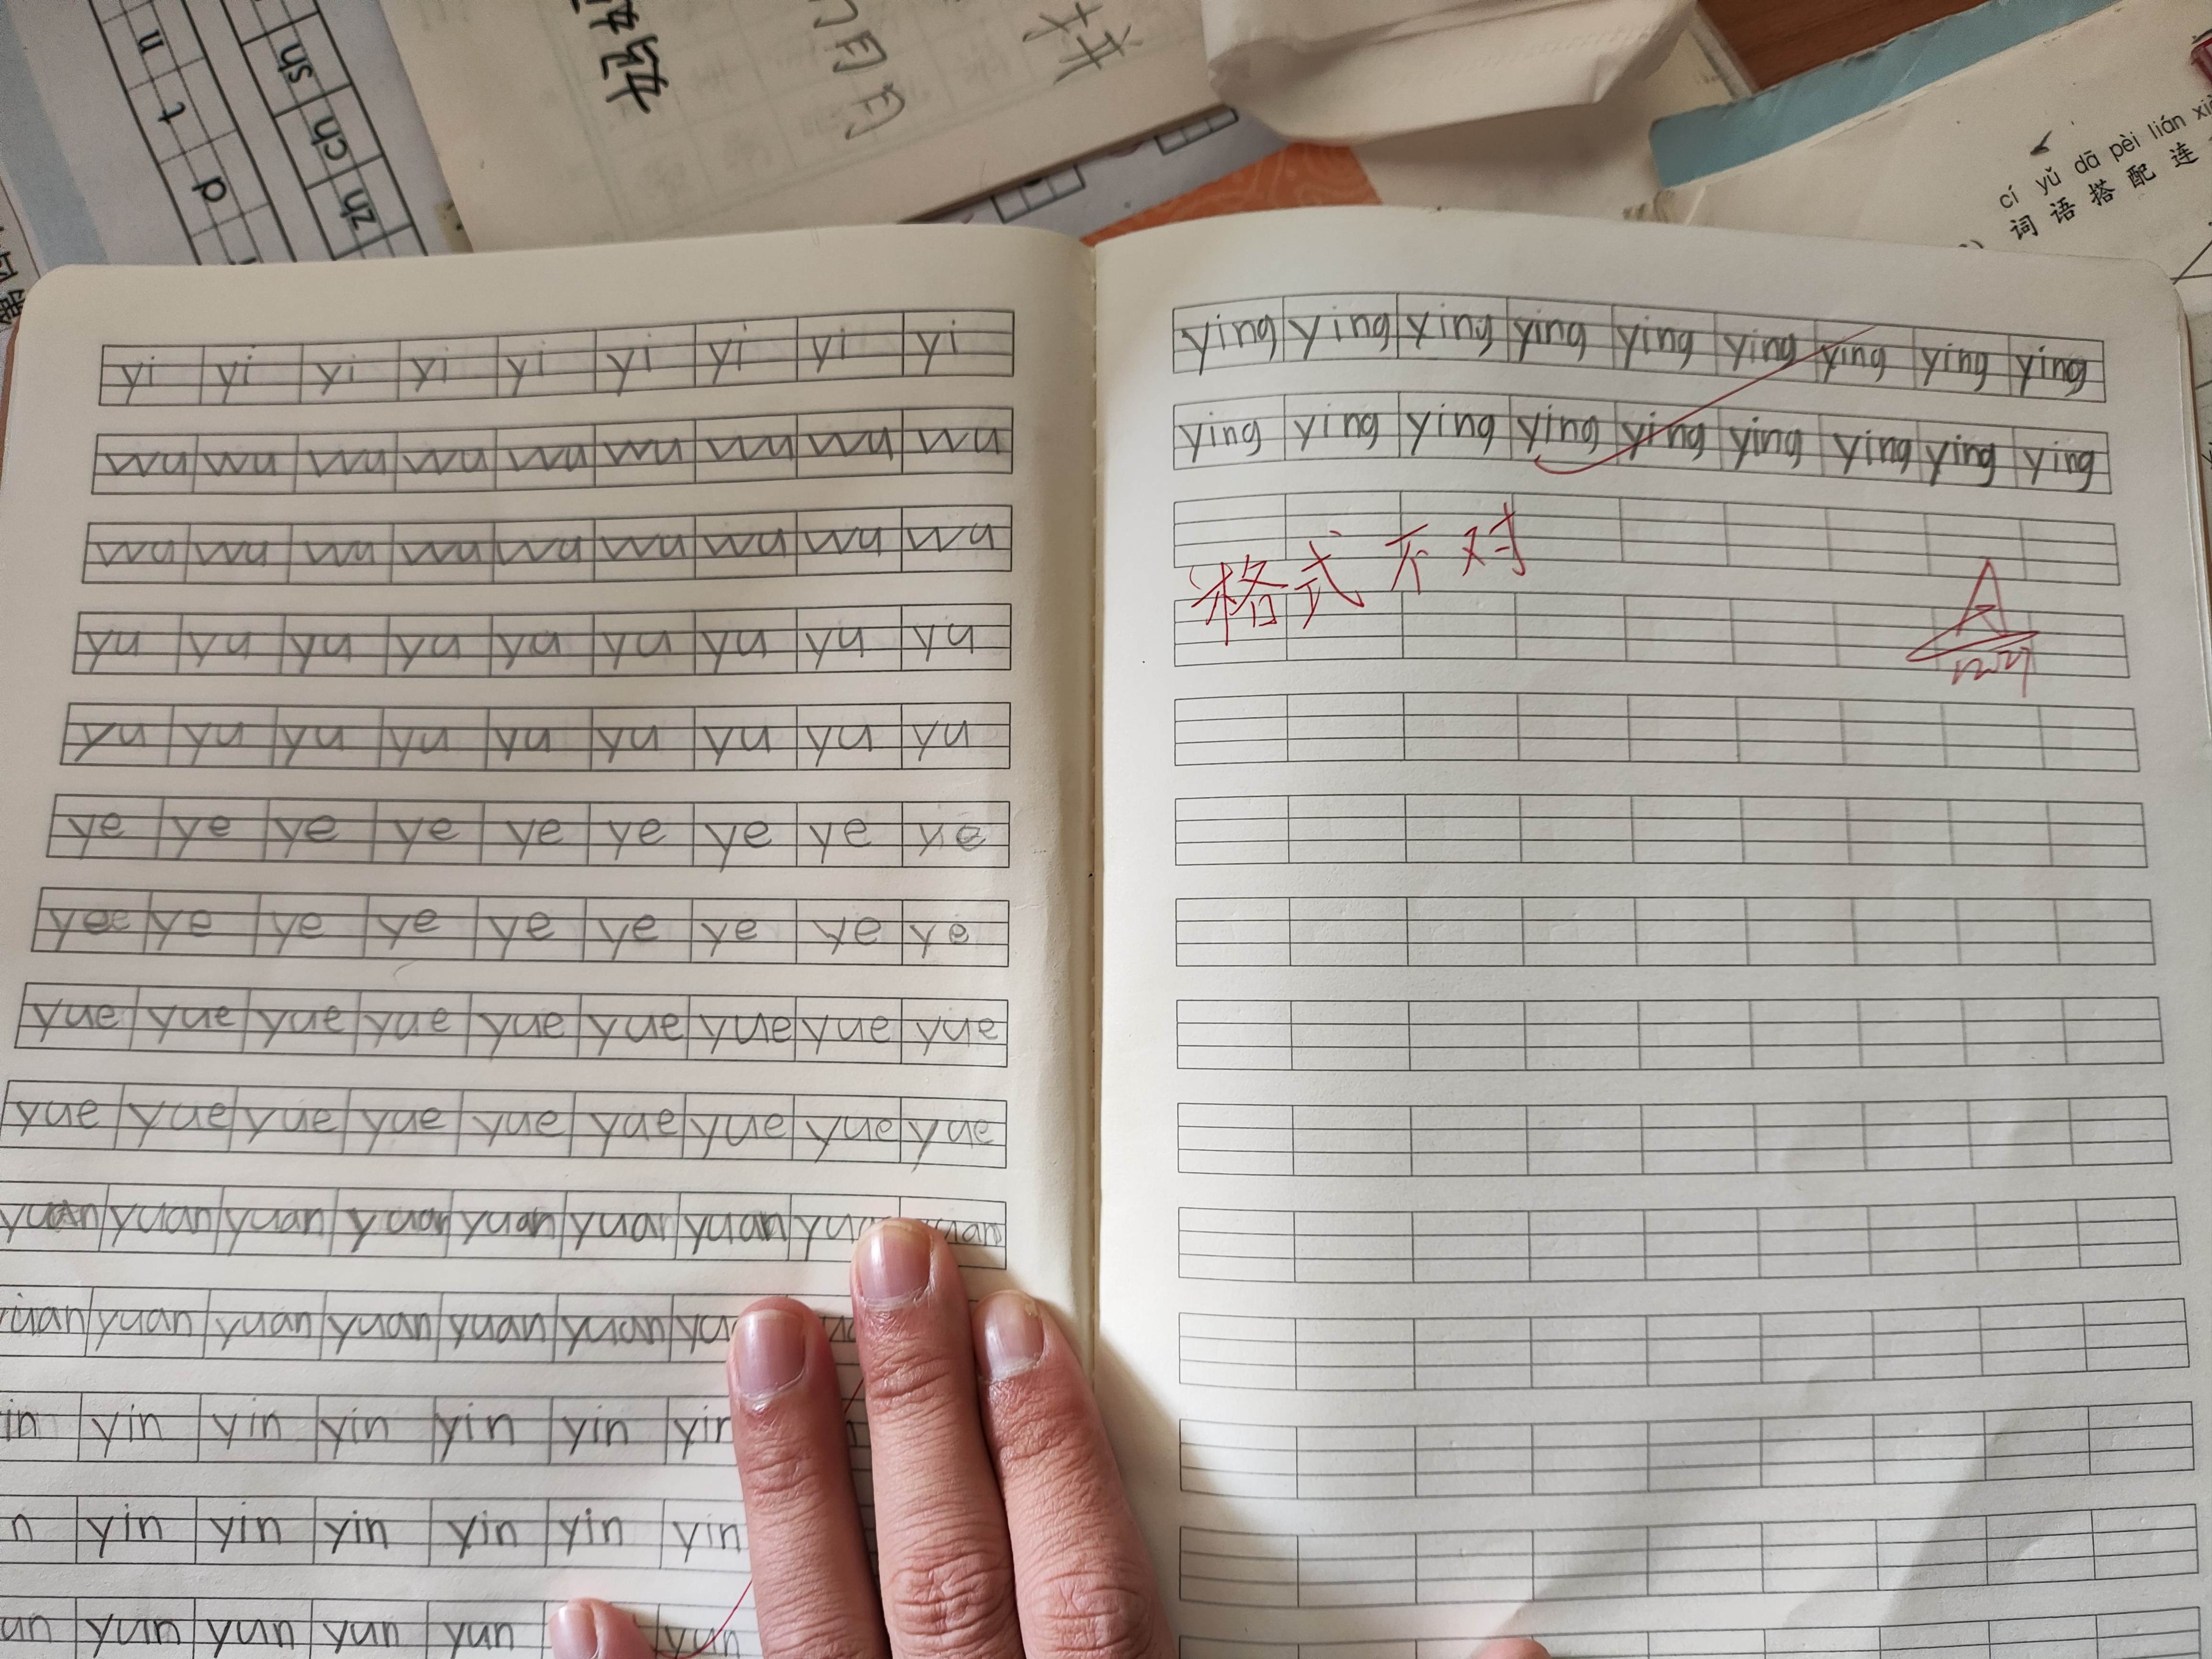 n t d
sh ch zh
cí yǔ dā pèi lián
词语搭配连
yi yi yi yi yi yi yi yi yi
wu wu wu wu wu wu wu wu wu
wu wu wu wu wu wu wu wu wu
yu yu yu yu yu yu yu yu yu
yu yu yu yu yu yu yu yu yu
ye ye ye ye ye ye ye ye ye
ye ye ye ye ye ye ye ye
yue yue yue yue yue yue yue yue yue
yue yue yue yue yue yue yue yue yue
yuan yuan yuan yuan yuan yuan yuan
yuan yuan yuan yuan yuan
yin yin yin yin yin
yin yin yin yin yin yin
yun yun yun yun yun
ying ying ying ying ying ying ying ying ying
ying ying ying ying ying ying ying ying ying
格式不对
A